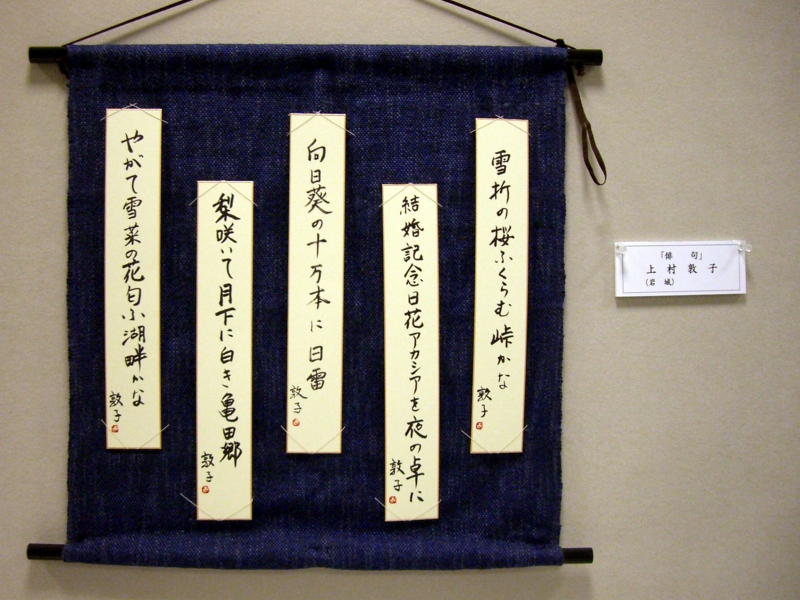 雪折の桜ふくらむ峠かな
敦子
結婚記念日花アカシアを夜の卓に
敦子
向日葵の十万本に日雷
敦子
梨咲いて月下に白き亀田郷
敦子
やがて雪菜の花匂ふ湖畔かな
敦子
「俳句」
上村敦子
(岩城)